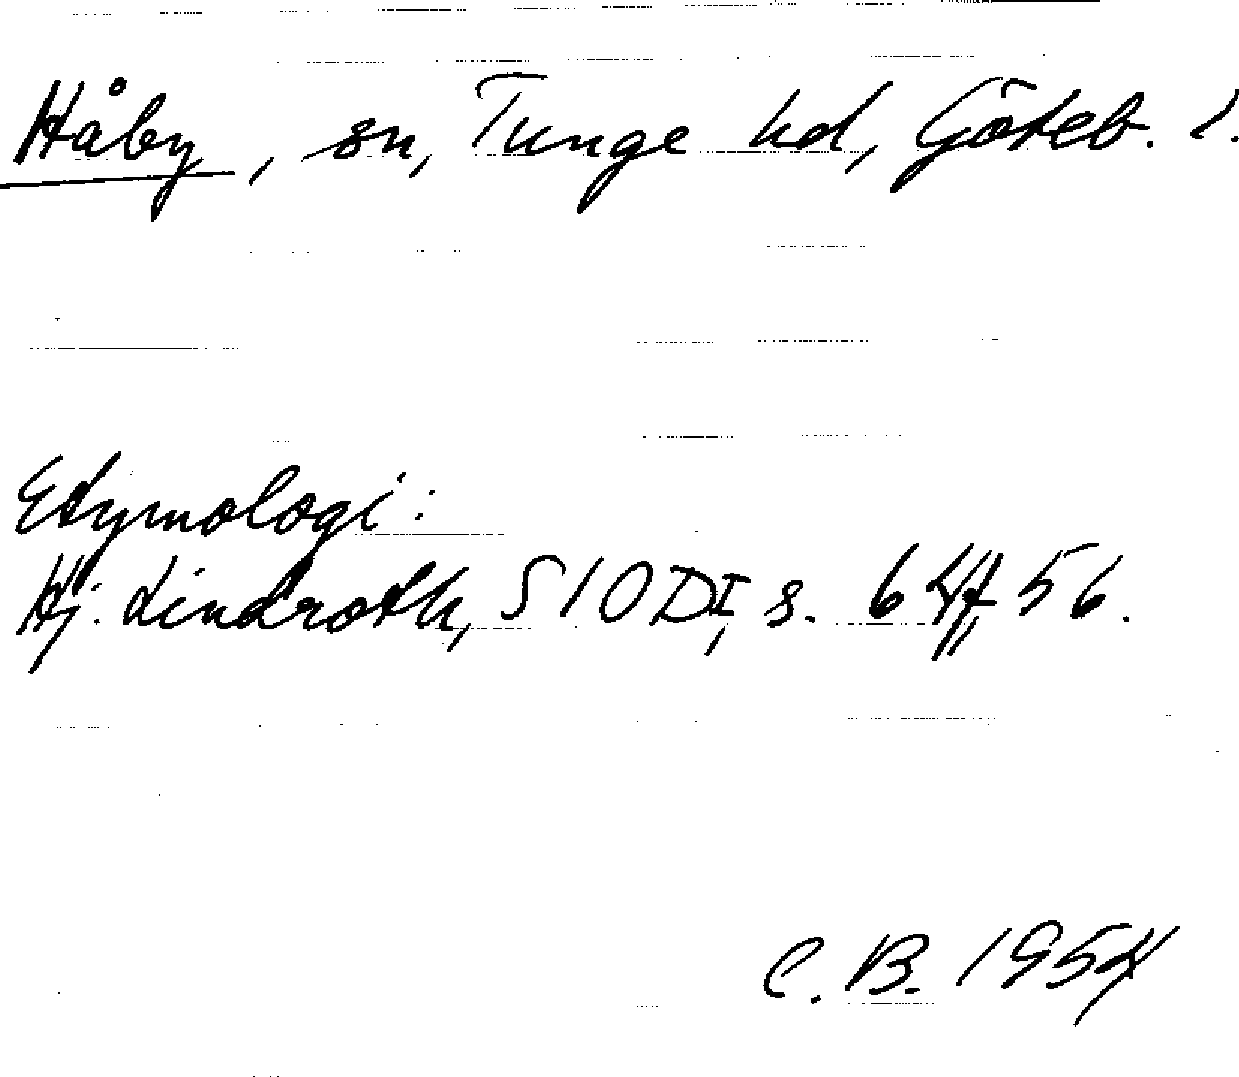 Håby, sn, Tunge hd, Göteb. l.
Etymologi:
Hj. Lindroth, SIOD I, s. 56.
C. B. 1954